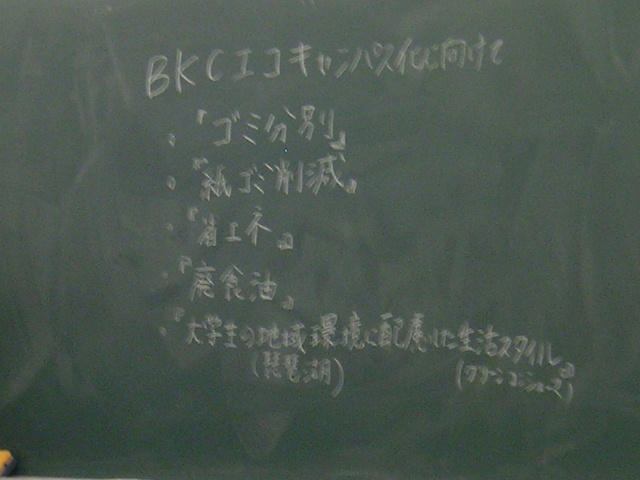 BKCエコキャンパス化に向けて
・『ゴミ分別』
・『紙ゴミ削減』
・『省エネ』
・『廃食油』
・『大学生の地域環境に配慮した生活スタイル』
(琵琶湖)